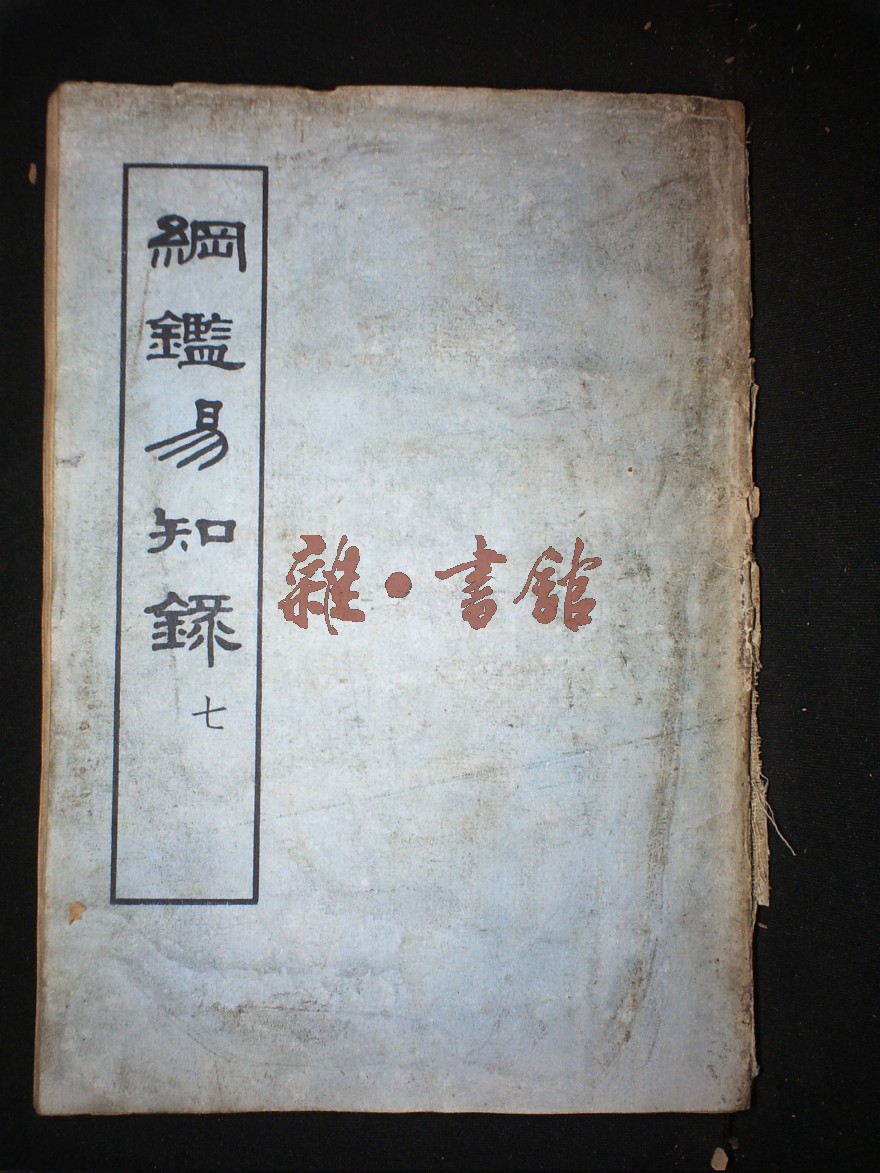 綱鑑易知錄
七
雜·書館